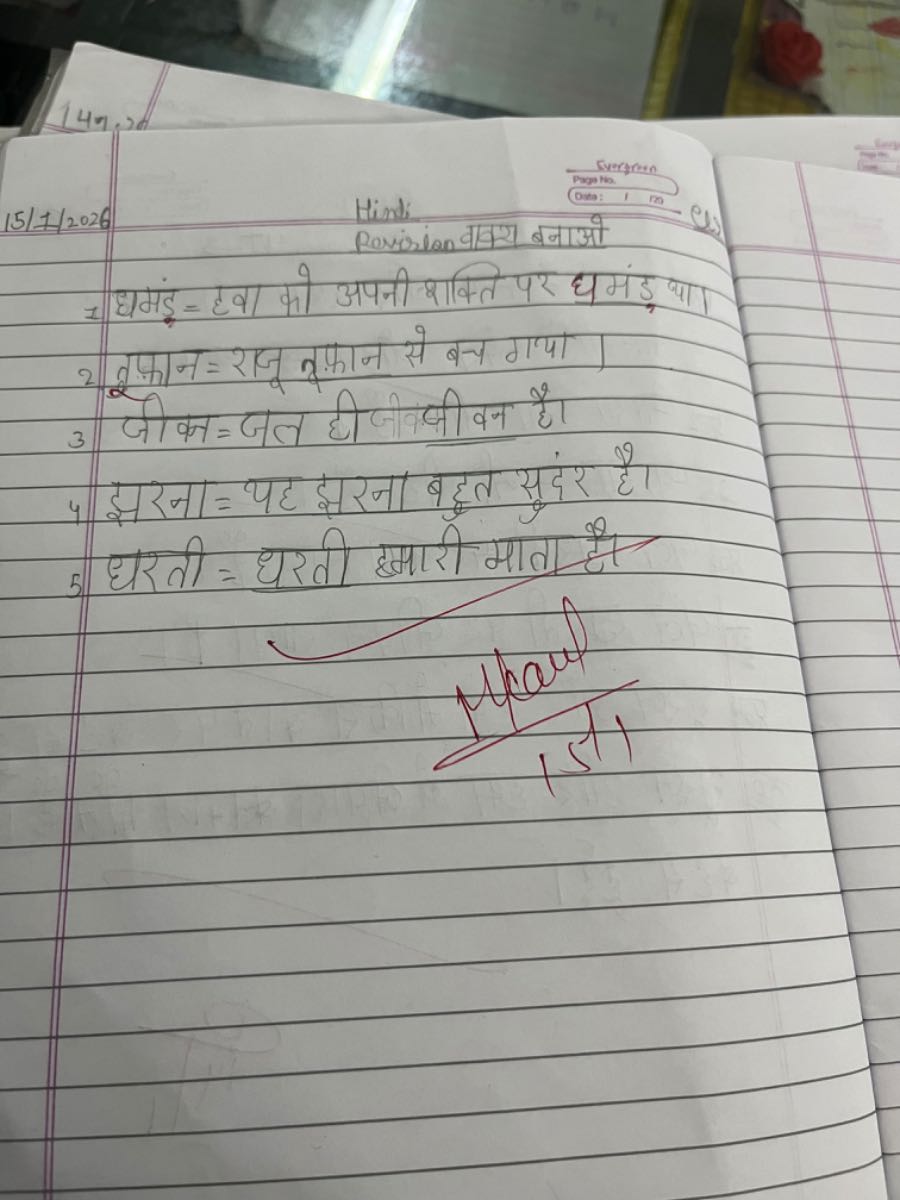 Evergreen
Page No.
Date: / /20
15/1/2026
Hindi
Revirian वाक्य बनाओ
1 घमंड़ = हवा को अपनी शक्ति पर घमंड़ था।
2 तूफ़ान = राजू तूफ़ान से बच गया।
3 जीवन = जल ही जीवन है।
4 झरना = यह झरना बहुत सुदंर है।
5 धरती = धरती हमारी माता है।